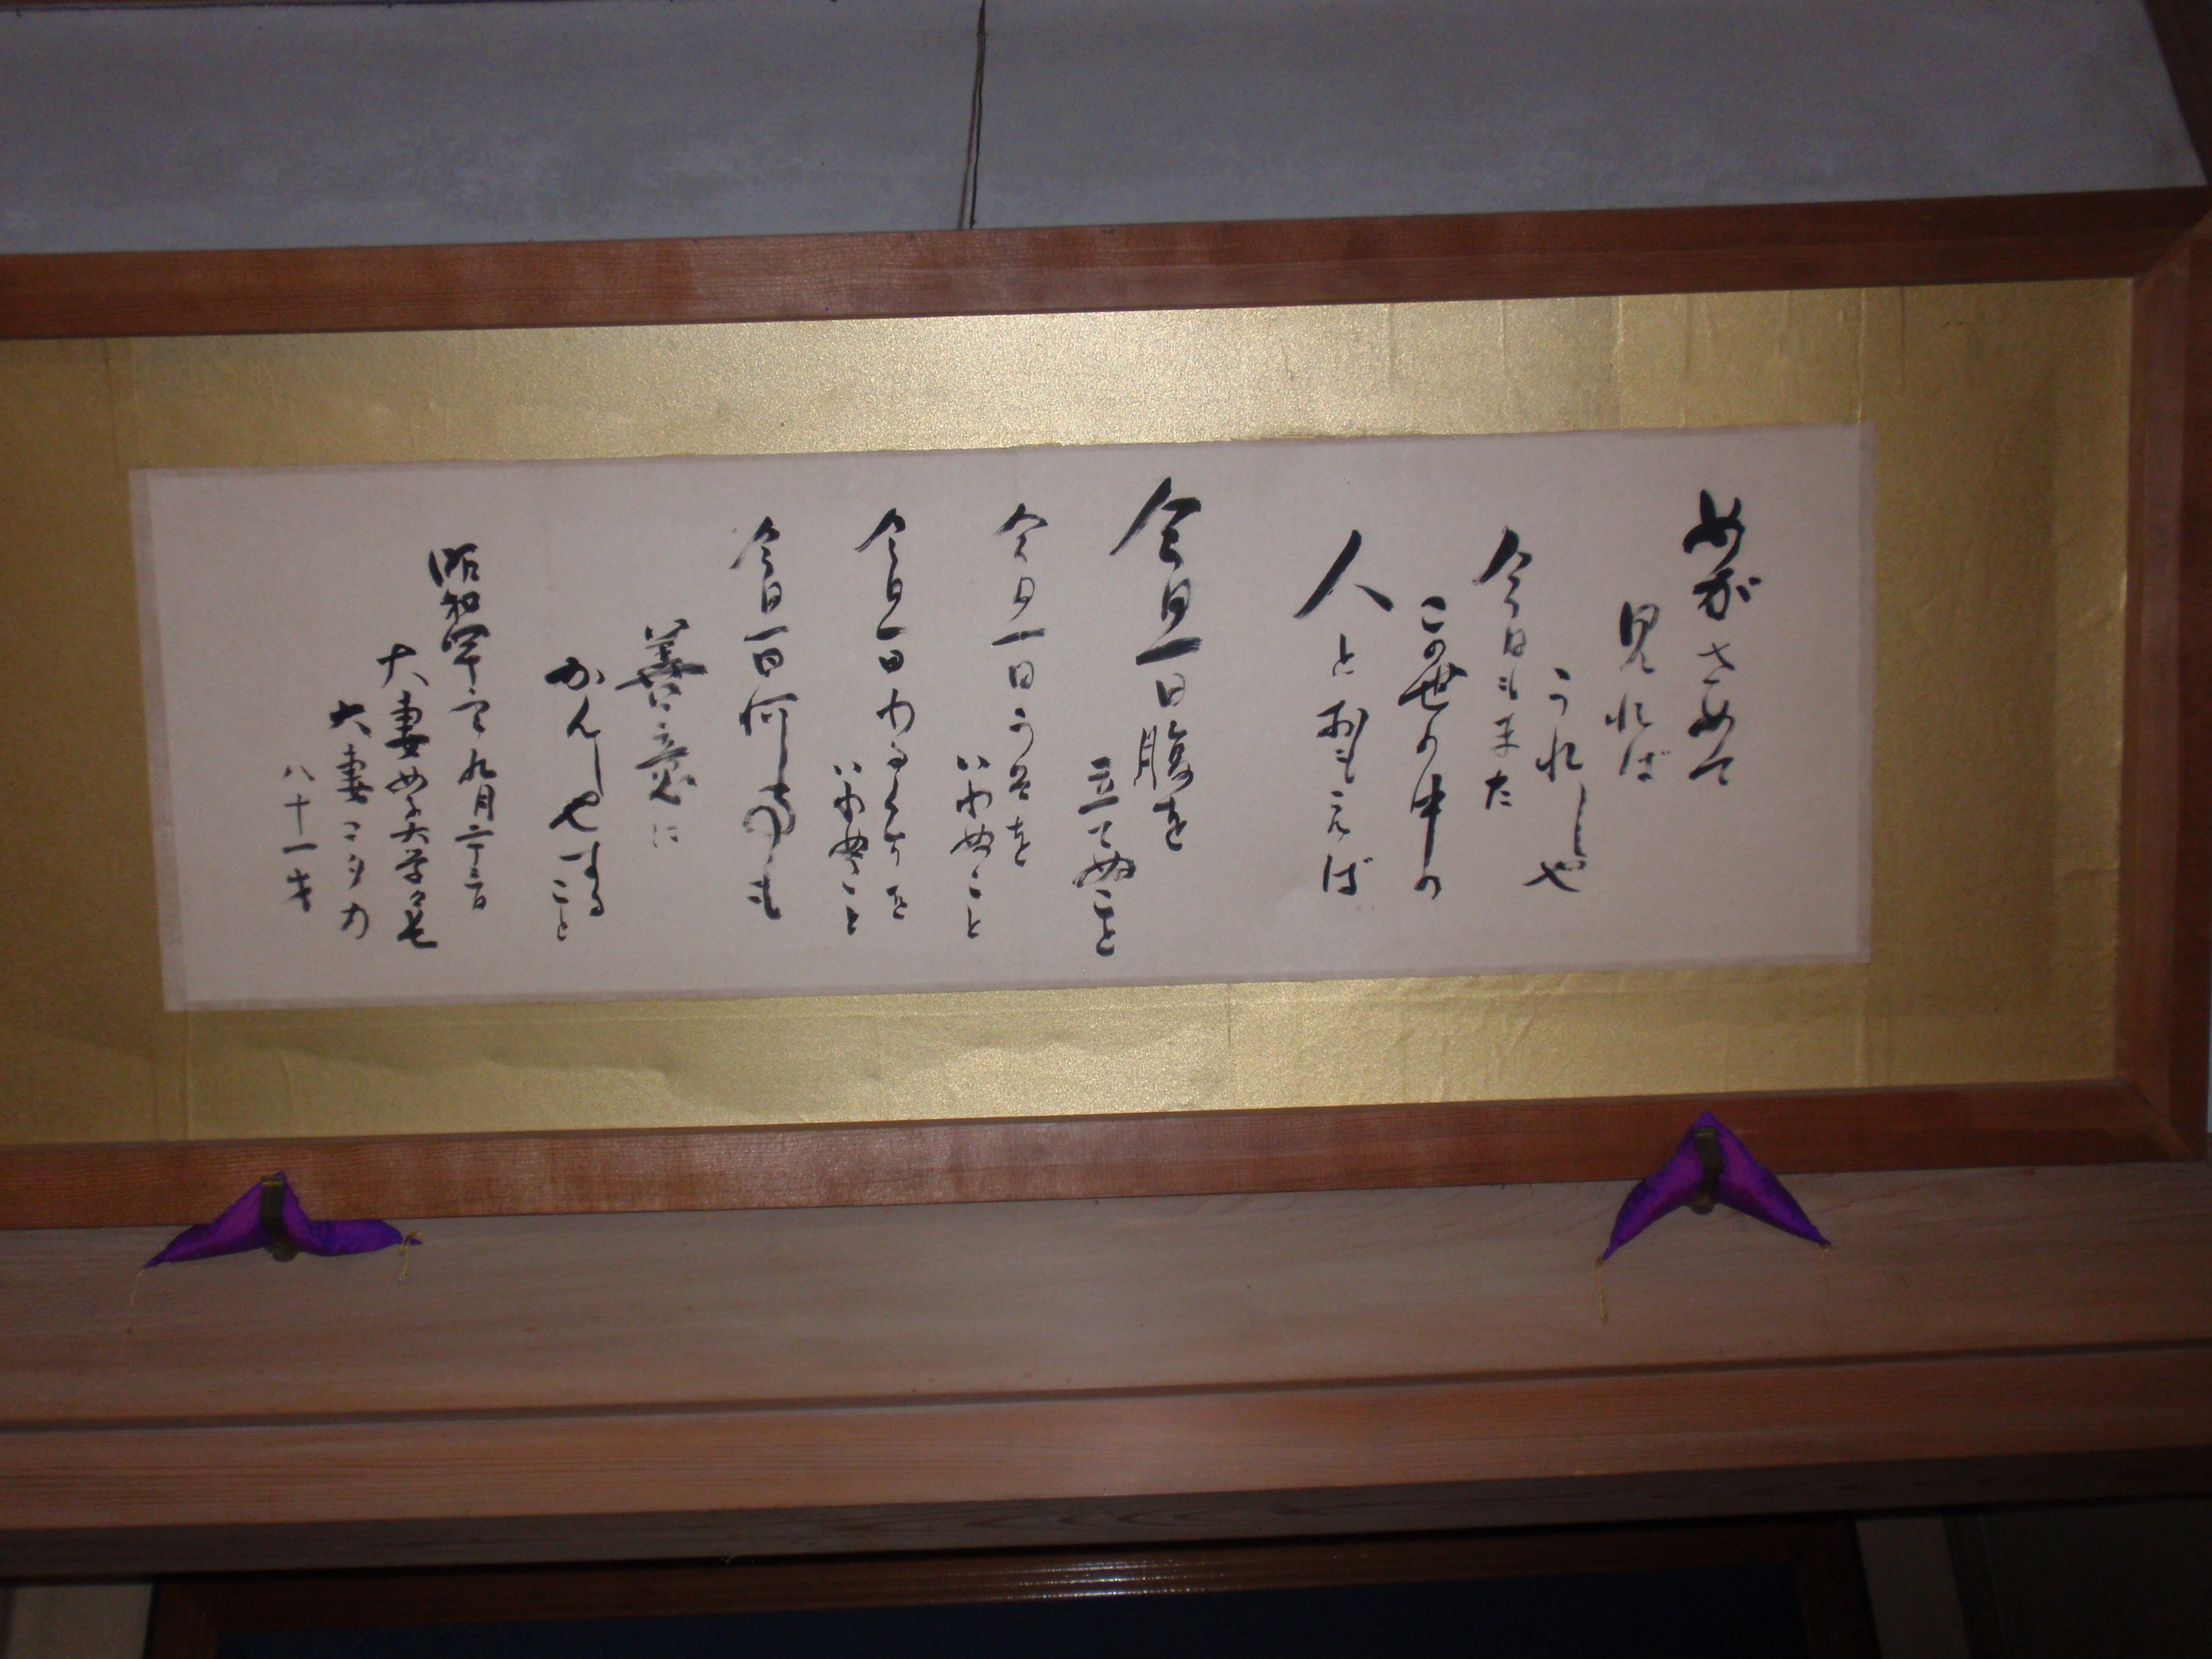 めがさめて
見れば
うれしや
今日もまた
この世の中の
人とおもえば
今日一日腹を
立てぬこと
今日一日うそを
いわぬこと
今日一日わるくちを
いわぬこと
今日一日何事も
善意に
かんしやする
こと
昭和四十 年九月二十 日
大妻女子大学々長
大妻コタカ
八十一才